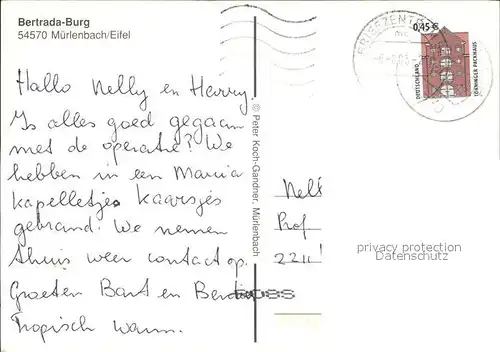 Bertrada-Burg
54570 Mürlenbach/Eifel
Hallo Nelly en Harry.
Is alles goed gegaan
met de operatie? We
hebben in een Maria
kapelletje kaarsjes
gebrand. We nemen
thuis weer contact op.
Groeten Bart en
Tropisch warm.
© Peter Koch-Gandner, Mürlenbach
BRIEFZENTR
0,45 €
DEUTSCHLAND
TÖNNINGER PACKHAUS
Nel
Prof
2211
privacy protection
Datenschutz